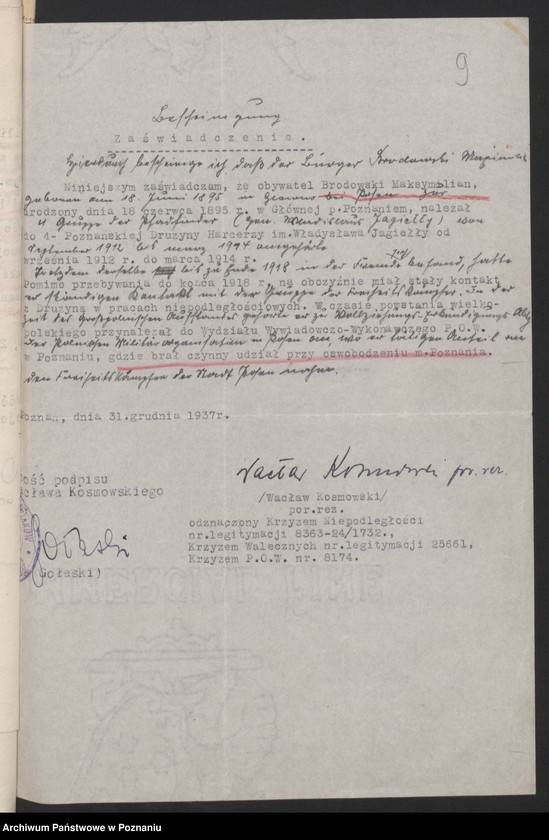 9
Bescheinigung
Zaświadczenie.
Hiermit bescheinige ich daß der Bürger Brodowski Maximilian
Niniejszym zaświadczam, że obywatel Brodowski Maksymilian,
geboren am 18. Juni 1895 in Glowno bei Posen zur
urodzony dnia 18 czerwca 1895 r. w Głównej p.Poznaniem, należał
4 Gruppe der Pfadfinder (gen. Wladislaus Jagiełły) von
do 4- Poznańskiej Drużyny Harcerzy im.Władysława Jagiełły od
September 1912 bis marz 1914 angehörte
września 1912 r. do marca 1914 r.
Trotzdem derselbe bis zu Ende 1918 in der Fremde sich befand, hatte
Pomimo przebywania do końca 1918 r. na obczyźnie miał stały kontakt
er ständigen Kontakt mit der Gruppe der Freiheitskämpfer. In der
z Drużyną w pracach niepodległościowych. W czasie powstania wielko-
zeit des Großpolnischen Aufstandes gehörte er zu Vollziehungs-Erkundigungs Abtg
polskiego przynależał do Wydziału Wywiadowczo-Wykonawczego P.O.W.
der Polnischen Militärorganisation in Posen an, wo er tätigen Anteil an
w Poznaniu, gdzie brał czynny udział przy oswobodzeniu m.Poznania.
den Freiheitskämpfen der Stadt Posen nahm.
oznań, dnia 31.grudnia 1937r.
ość podpisu
cława Kosmowskiego
(Gołaski)
Wacław Kosmowski por. rez.
/Wacław Kosmowski/
por.rez.
odznaczony Krzyżem Niepodległości
nr.legitymacji 8363-24/1732.,
Krzyżem Walecznych nr.legitymacji 25661,
Krzyżem P.O.W. nr. 8174.
Archiwum Państwowe w Poznaniu